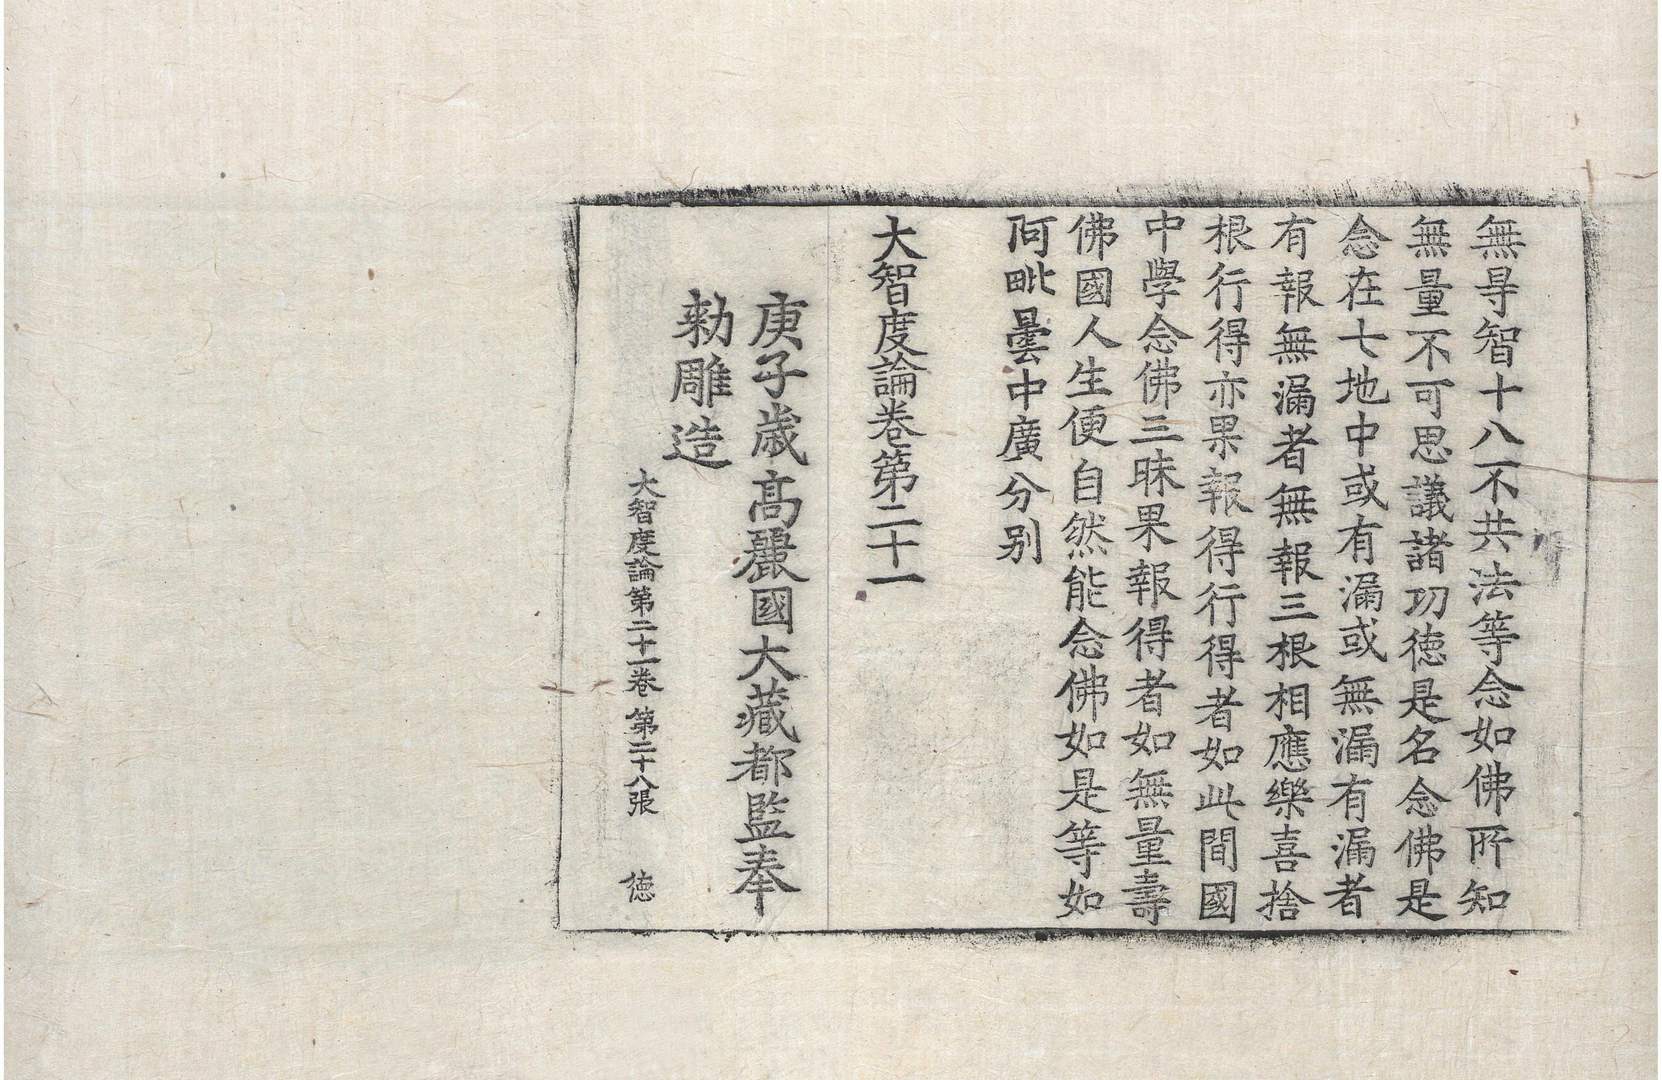 無㝵智十八不共法等念如佛所知
無量不可思議諸功德是名念佛是
念在七地中或有漏或無漏有漏者
有報無漏者無報三根相應樂喜捨
根行得亦果報得行得者如此間國
中學念佛三昧果報得者如無量壽
佛國人生便自然能念佛如是等如
阿毗曇中廣分别
大智度論卷第二十一
庚子歲高麗國大藏都監奉
勑雕造
大智度論第二十一卷 第二十八張 德